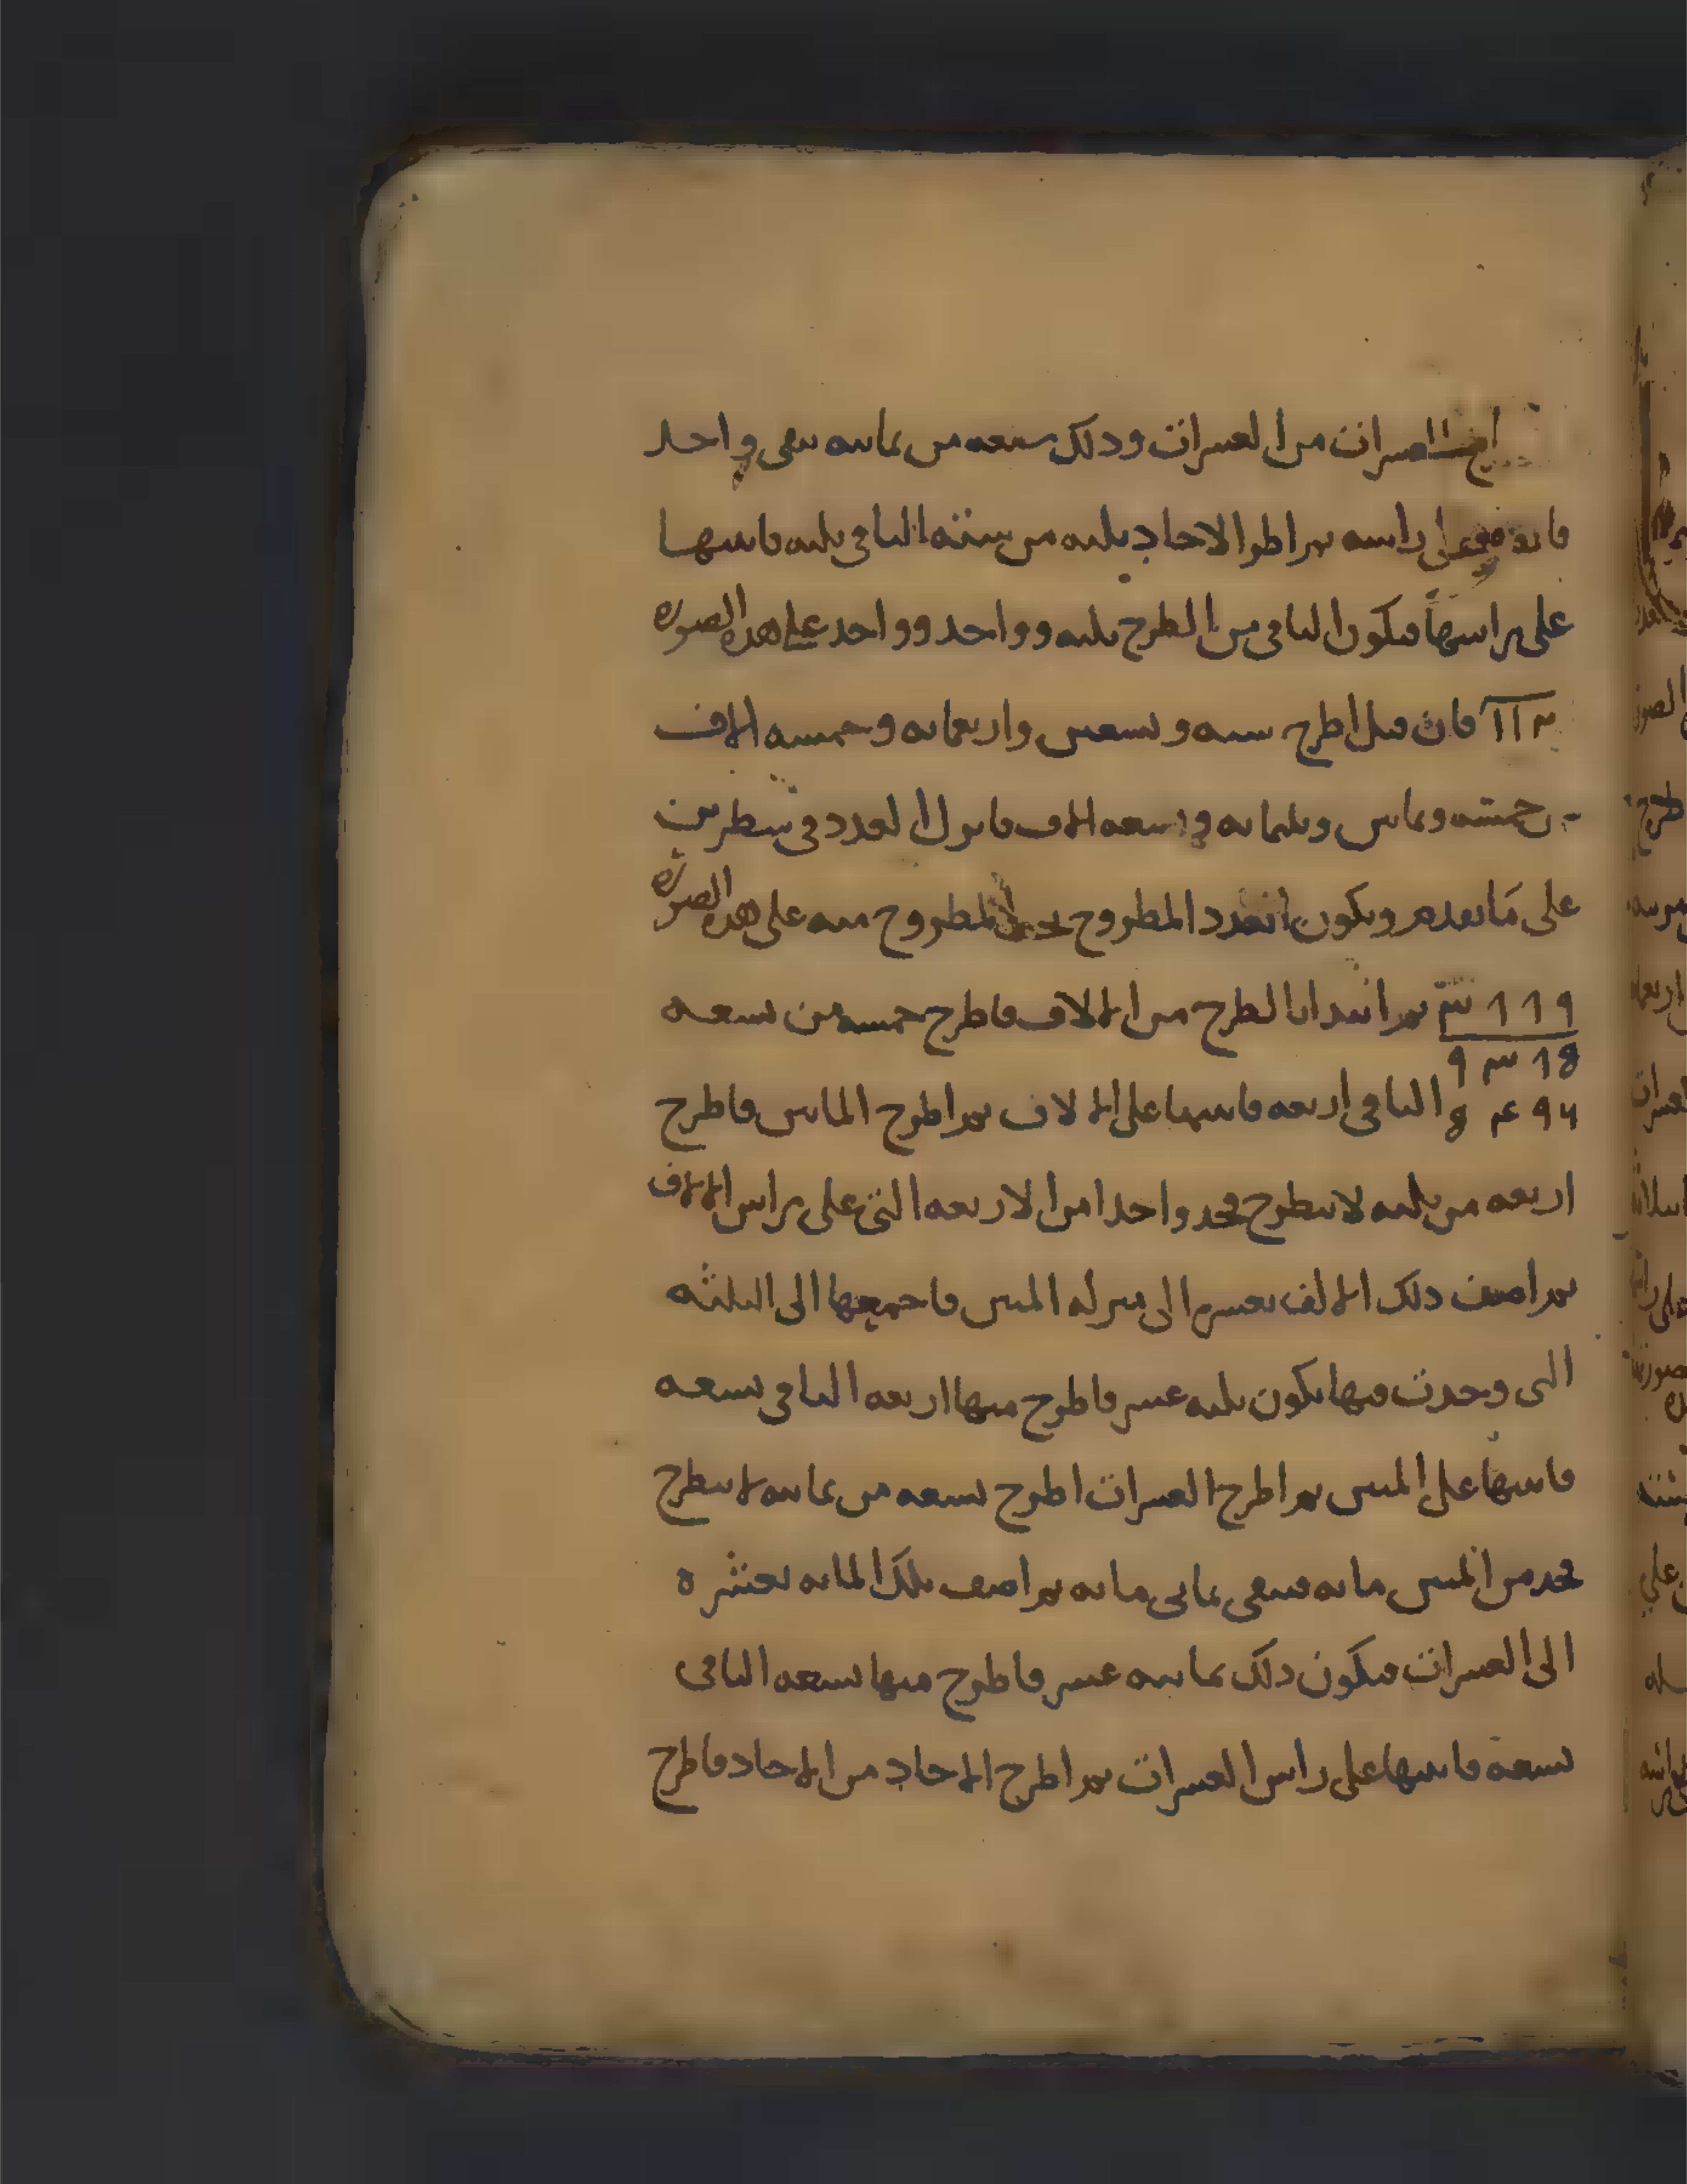 اطرح العشرات من العشرات وذلك سبعه من ثمانيه يبقى واحد
فاثبته على راسه ثم اطرح الاحاد ثلثه من ستة الباقي ثلثه فاثبتها
على راسها فيكون الباقي من الطرح ثلثه وواحد وواحد على هذه الصورة
فان قيل اطرح سته وتسعين واربعمائه وخمسه الاف
من خمسة وثمانين وثلثمائه وتسعه الاف فانزل العدد في سطرين
على ما تقدم ويكون العدد المطروح تحت المطروح منه على هذه الصورة
ثم ابتدا بالطرح من الالاف فاطرح خمسه من تسعه
الباقي اربعه فاثبتها على الالاف ثم اطرح المايين فاطرح
اربعه من ثلثه لا ينطرح فخذ واحدا من الاربعه التي على راس الالاف
ثم اضف ذلك الالف بعشره الى منزله المئين فاجمعها الى الثلثه
التي وجدت فيها يكون ثلثه عشر فاطرح منها اربعه الباقي تسعه
فاثبتها على المئين ثم اطرح العشرات اطرح تسعه من ثمانيه لا ينطرح
فخذ من المئين مائه فيبقى ثماني مائه ثم اضف تلك المائه بعشرة
الى العشرات فيكون ذلك ثمانيه عشر فاطرح منها تسعه الباقي
تسعة فاثبتها على راس العشرات ثم اطرح الاحاد من الاحاد فاطرح